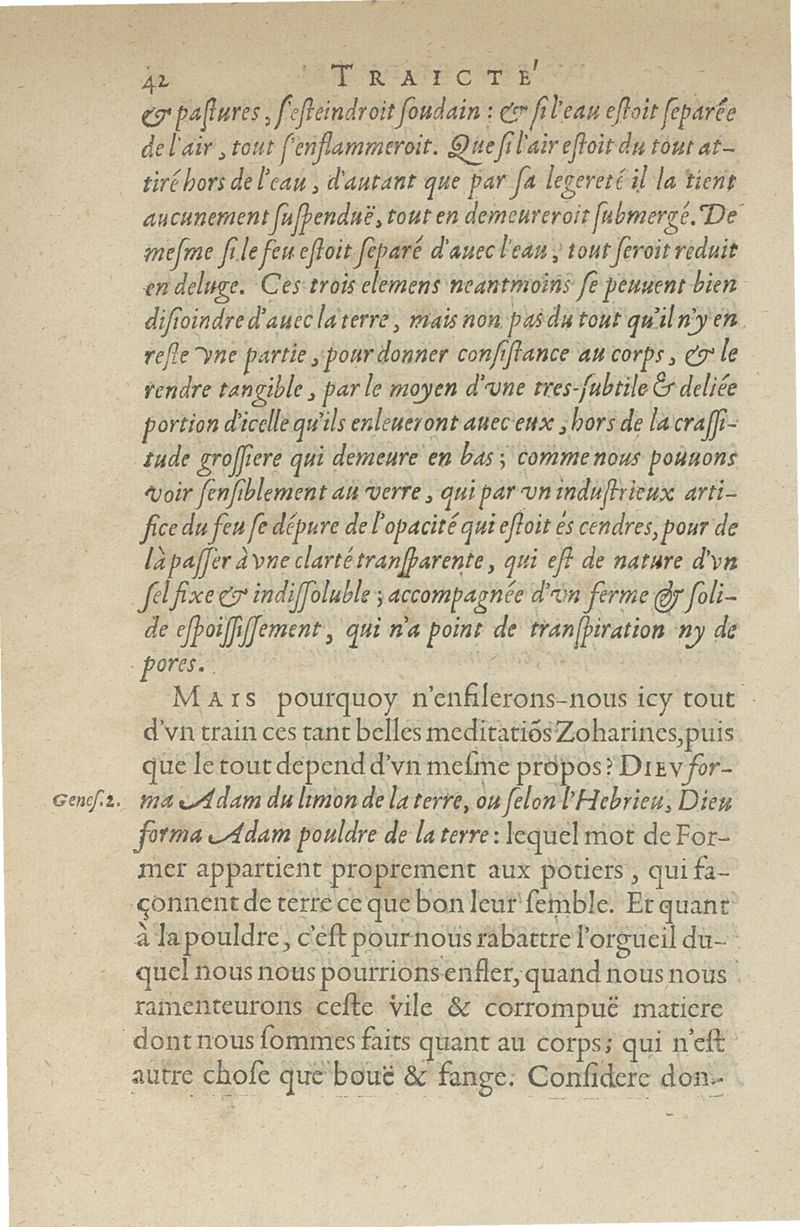 42 TRAICTÉ
& paſtures, ſ'eſteindroit ſoudain : & ſi l'eau eſtoit ſeparée
de l'air, tout ſ'enflammeroit. Que ſi l'air eſtoit du tout at-
tiré hors de l'eau, d'autant que par ſa legereté il la tient
aucunement ſuſpenduë, tout en demeureroit ſubmergé. De
meſme ſi le feu eſtoit ſeparé d'auec l'eau, tout ſeroit reduit
en deluge. Ces trois elemens neantmoins ſe peuuent bien
diſioindre d'auec la terre, mais non pas du tout qu'il n'y en
reſte vne partie, pour donner conſiſtance au corps, & le
rendre tangible, par le moyen d'vne tres-ſubtile & deliée
portion d'icelle qu'ils enleueront auec eux, hors de la craſſi-
tude groſſiere qui demeure en bas ; comme nous pouuons
voir ſenſiblement au verre, qui par vn induſtrieux arti-
fice du feu ſe dépure de l'opacité qui eſtoit és cendres, pour de
là paſſer à vne clarté tranſparente, qui eſt de nature d'vn
ſel fixe & indiſſoluble ; accompagnée d'vn ferme & ſoli-
de eſpoiſſiſſement, qui n'a point de tranſpiration ny de
pores.
MAIS pourquoy n'enfilerons-nous icy tout
d'vn train ces tant belles meditatiõs Zoharines, puis
que le tout depend d'vn meſme propos ? DIEV for-
Geneſ. 2. ma Adam du limon de la terre, ou ſelon l'Hebrieu, Dieu
forma Adam pouldre de la terre : lequel mot de For-
mer appartient proprement aux potiers, qui fa-
çonnent de terre ce que bon leur ſemble. Et quant
à la pouldre, c'eſt pour nous rabattre l'orgueil du-
quel nous nous pourrions enfler, quand nous nous
ramenteurons ceſte vile & corrompuë matiere
dont nous ſommes faits quant au corps ; qui n'eſt
autre choſe que bouë & fange. Conſidere don-